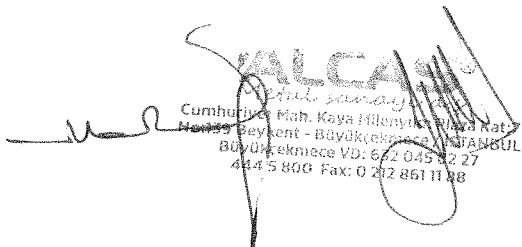 ALCAS®
metal sanayi
Cumhuriyet Mah. Kaya Milenyum Plaza Kat:7
Beykent - Büyükçekmece / İSTANBUL
Büyükçekmece VD: 632 045 82 27
444 5 800 Fax: 0 212 861 11 88